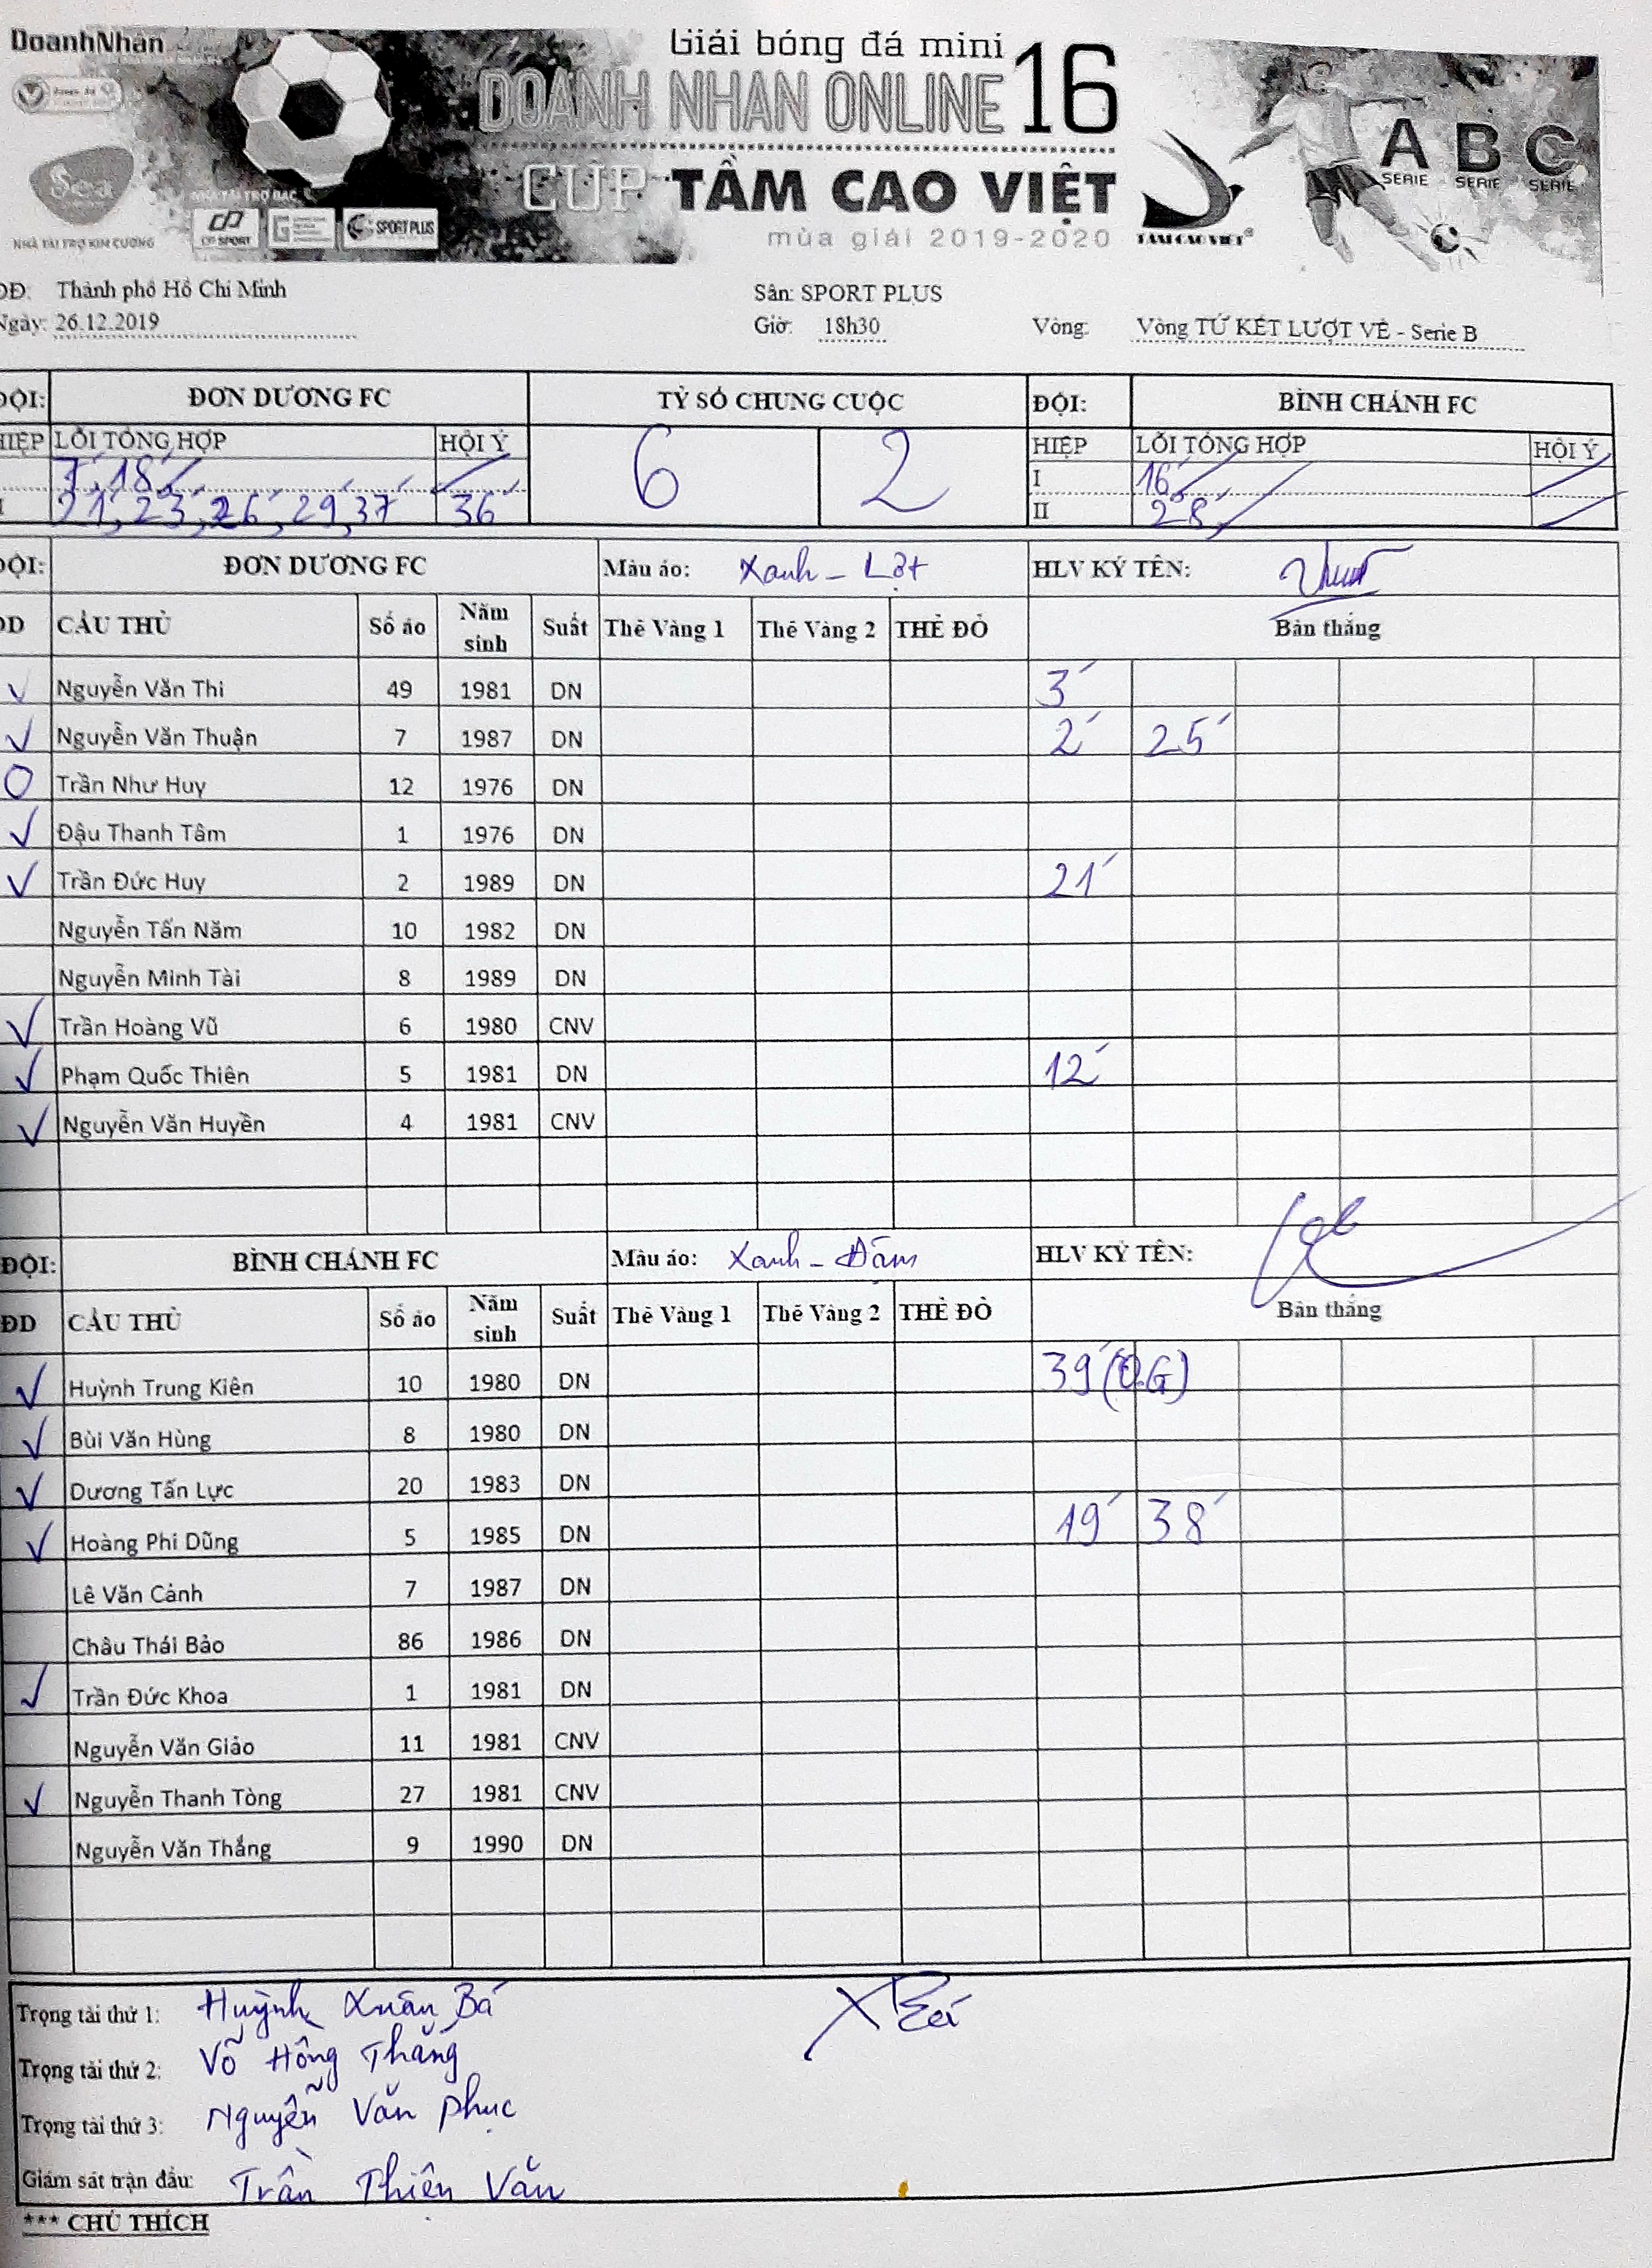 DoanhNhân
Giải bóng đá mini
DOANH NHÂN ONLINE 16
CUP TẦM CAO VIỆT
mùa giải 2019-2020
Sea
NHÀ TÀI TRỢ KIM CƯƠNG
NHÀ TÀI TRỢ BẠC
CP SPORT
SPORT PLUS
TẦM CAO VIỆT®
A SERIE B SERIE C SERIE
ĐĐ: Thành phố Hồ Chí Minh Sân: SPORT PLUS
Ngày: 26.12.2019 Giờ: 18h30 Vòng: Vòng TỨ KẾT LƯỢT VỀ - Serie B
ĐỘI: ĐƠN DƯƠNG FC TỶ SỐ CHUNG CUỘC ĐỘI: BÌNH CHÁNH FC
HIỆP LỖI TỔNG HỢP HỘI Ý 6 2 HIỆP LỖI TỔNG HỢP HỘI Ý
7', 18' I 16'
21', 23', 26', 29', 37' 36' II 28'
ĐỘI: ĐƠN DƯƠNG FC Màu áo: Xanh - Lợt HLV KÝ TÊN:
DD CẦU THỦ Số áo Năm sinh Suất Thẻ Vàng 1 Thẻ Vàng 2 THẺ ĐỎ Bàn thắng
Nguyễn Văn Thi 49 1981 DN 3'
Nguyễn Văn Thuận 7 1987 DN 2' 25'
Trần Như Huy 12 1976 DN
Đậu Thanh Tâm 1 1976 DN
Trần Đức Huy 2 1989 DN 21'
Nguyễn Tấn Năm 10 1982 DN
Nguyễn Minh Tài 8 1989 DN
Trần Hoàng Vũ 6 1980 CNV
Phạm Quốc Thiên 5 1981 DN 12'
Nguyễn Văn Huyền 4 1981 CNV
ĐỘI: BÌNH CHÁNH FC Màu áo: Xanh - Đậm HLV KÝ TÊN:
ĐD CẦU THỦ Số áo Năm sinh Suất Thẻ Vàng 1 Thẻ Vàng 2 THẺ ĐỎ Bàn thắng
Huỳnh Trung Kiên 10 1980 DN 39' (O.G)
Bùi Văn Hùng 8 1980 DN
Dương Tấn Lực 20 1983 DN
Hoàng Phi Dũng 5 1985 DN 19' 38'
Lê Văn Cảnh 7 1987 DN
Châu Thái Bảo 86 1986 DN
Trần Đức Khoa 1 1981 DN
Nguyễn Văn Giảo 11 1981 CNV
Nguyễn Thanh Tòng 27 1981 CNV
Nguyễn Văn Thắng 9 1990 DN
Trọng tài thứ 1: Huỳnh Xuân Bá
Trọng tài thứ 2: Võ Hồng Thắng
Trọng tài thứ 3: Nguyễn Văn Phục
Giám sát trận đấu: Trần Thiện Văn
*** CHÚ THÍCH